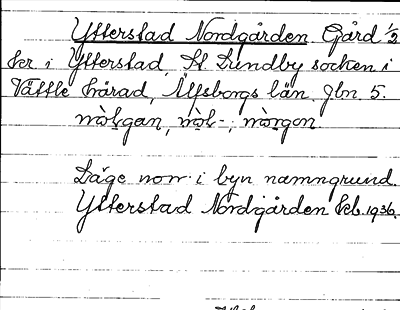 Ytterstad Nordgården. Gård 1/2
kr. i Ytterstad, St Lundby socken i
Vättle härad, Älfsborgs län. Jbn. 5.
nòlgan, nòl-, nòrgon
Läge norr i byn namngrund.
Ytterstad Nordgården Ekb. 1936.